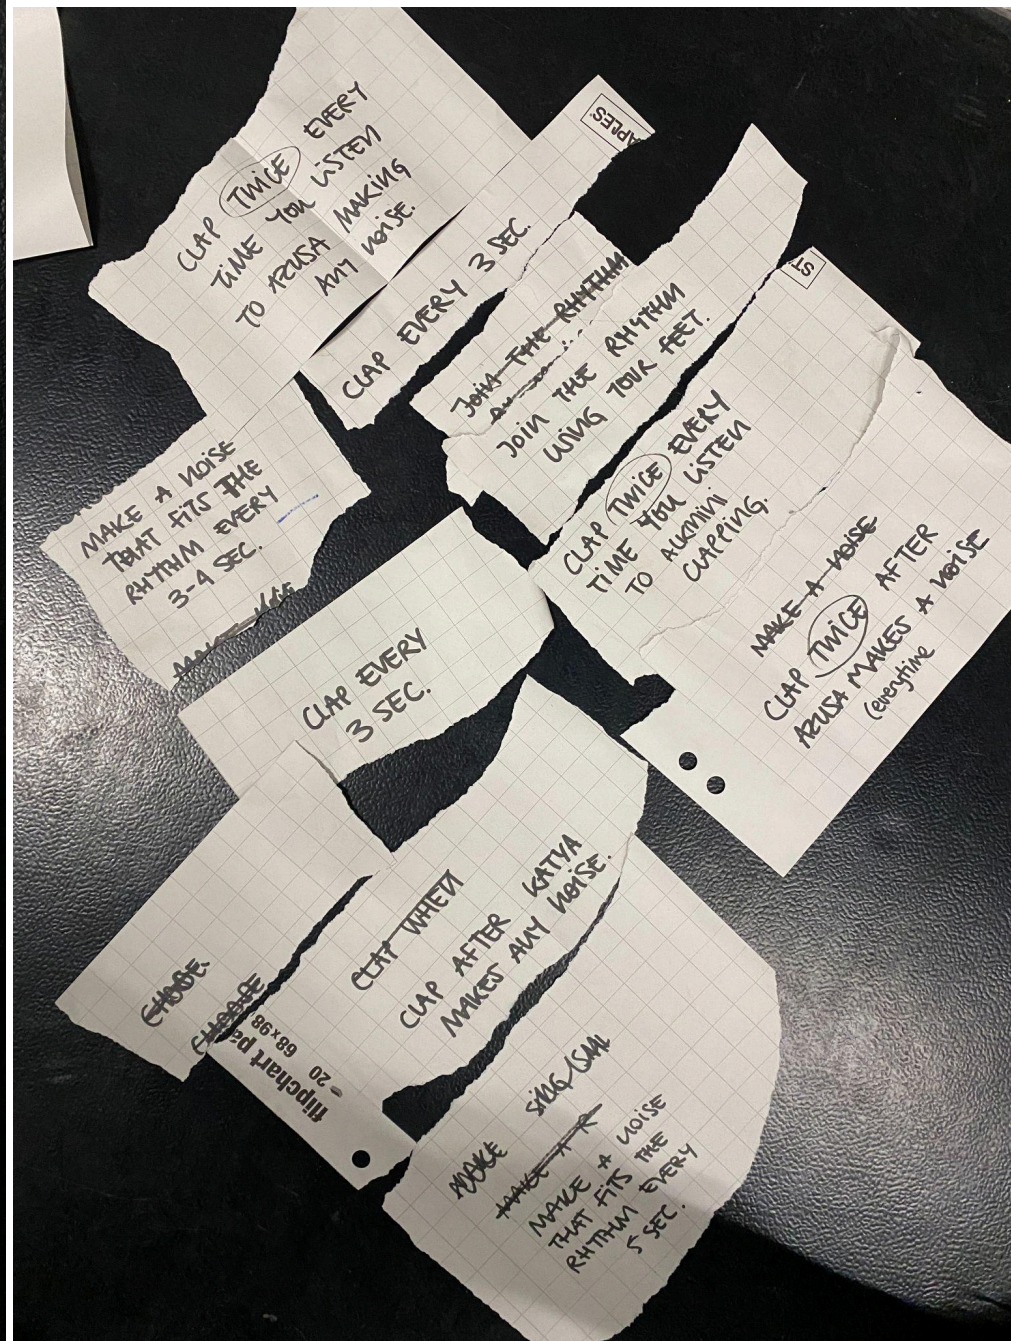 CLAP TWICE EVERY
TIME YOU LISTEN
TO AZUSA MAKING
ANY NOISE.
APLES
CLAP EVERY 3 SEC.
JOIN THE RHYTHM
JOIN THE RHYTHM
USING YOUR FEET.
ST
CLAP TWICE EVERY
TIME YOU LISTEN
TO ALKMINI
CLAPPING.
MAKE A NOISE
CLAP TWICE AFTER
AZUSA MAKES A NOISE
(everytime
MAKE A NOISE
THAT FITS THE
RHYTHM EVERY
3-4 SEC.
CLAP EVERY
3 SEC.
CHOOSE
flipchart pa
20
68x98
CLAP WHEN
CLAP AFTER KATYA
MAKES ANY NOISE.
MAKE
MAKE A R
MAKE A NOISE
THAT FITS THE
RHYTHM EVERY
5 SEC.